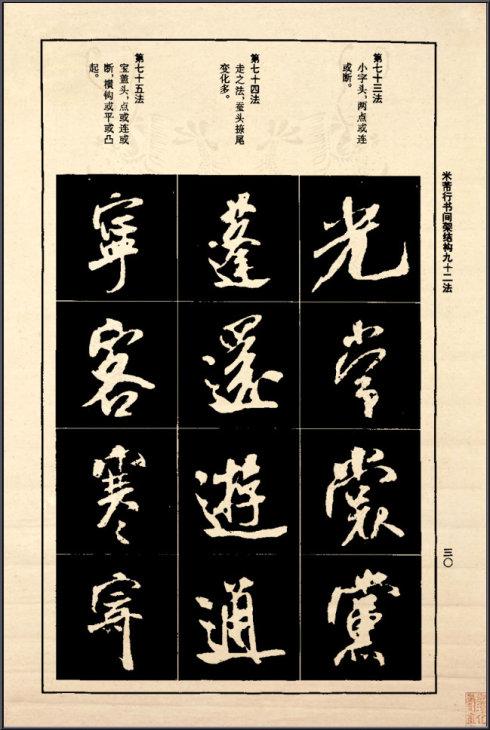 米芾行书间架结构九十二法
三〇
第七十三法
小字头,两点或连
或断。
光
常
裳
黨
第七十四法
走之法,蚕头捺尾
变化多。
蓬
還
遊
通
第七十五法
宝盖头,点或连或
断,横钩或平或凸
起。
寧
客
寒
寄